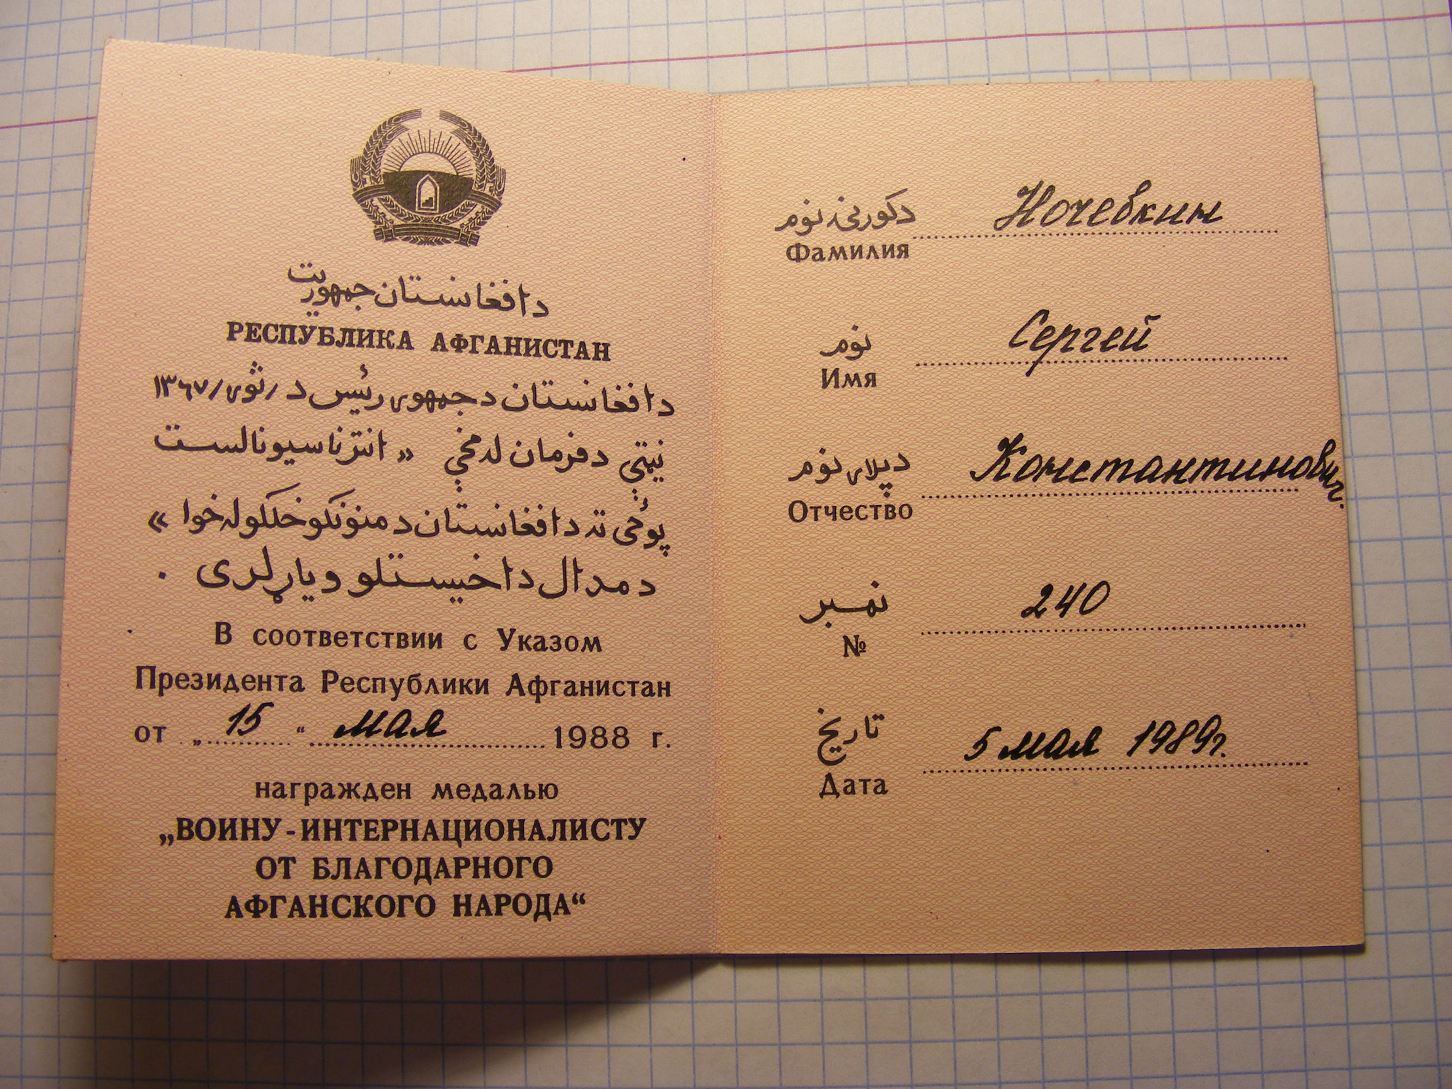 دافغانستان جمهوریت
РЕСПУБЛИКА АФГАНИСТАН
دافغانستان دجمهوری رئیس د /ثور/ ۱۳۶۷
نیټې دفرمان له مخې « انترناسیونالست
پوځی ته دافغانستان دمننونکو خلکو له خوا »
دمدال داخیستلو ویاړ لری .
В соответствии с Указом
Президента Республики Афганистан
от „15“ мая 1988 г.
награжден медалью
„ВОИНУ-ИНТЕРНАЦИОНАЛИСТУ
ОТ БЛАГОДАРНОГО
АФГАНСКОГО НАРОДА“
دکورنۍ نوم
Фамилия Ночевкин
نوم
Имя Сергей
دپلار نوم
Отчество Константинович.
نمبر
№ 240
تاریخ
Дата 5 мая 1989г.